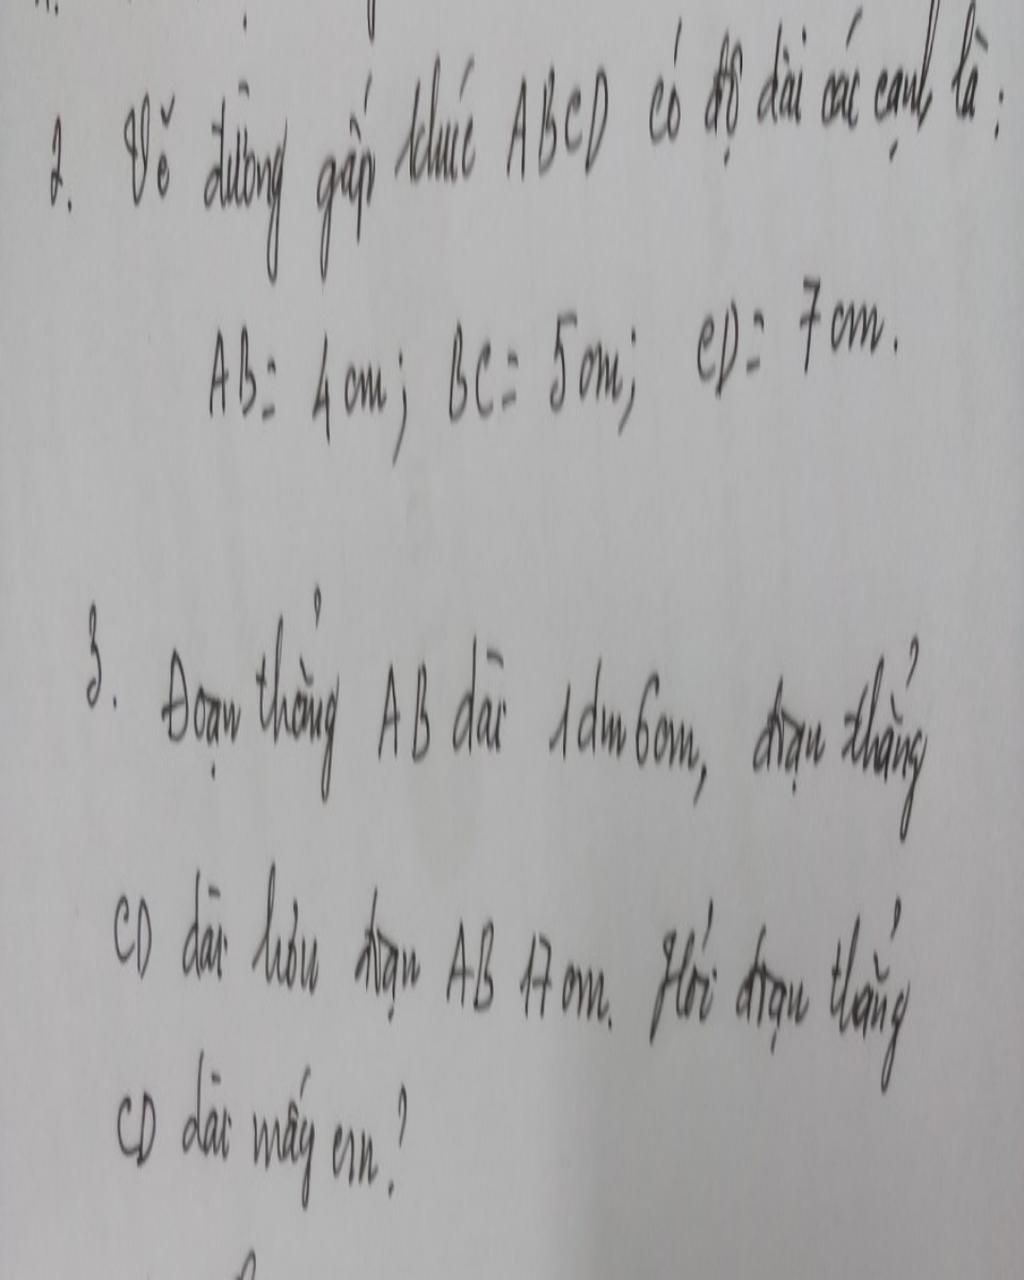 2. Vẽ đường gấp khúc ABCD có độ dài các cạnh là:
AB= 4cm; BC= 5cm; CD= 7cm.
3. Đoạn thẳng AB dài 1dm6cm, đoạn thẳng
CD dài hơn đoạn AB 17cm. Hỏi đoạn thẳng
CD dài mấy cm?